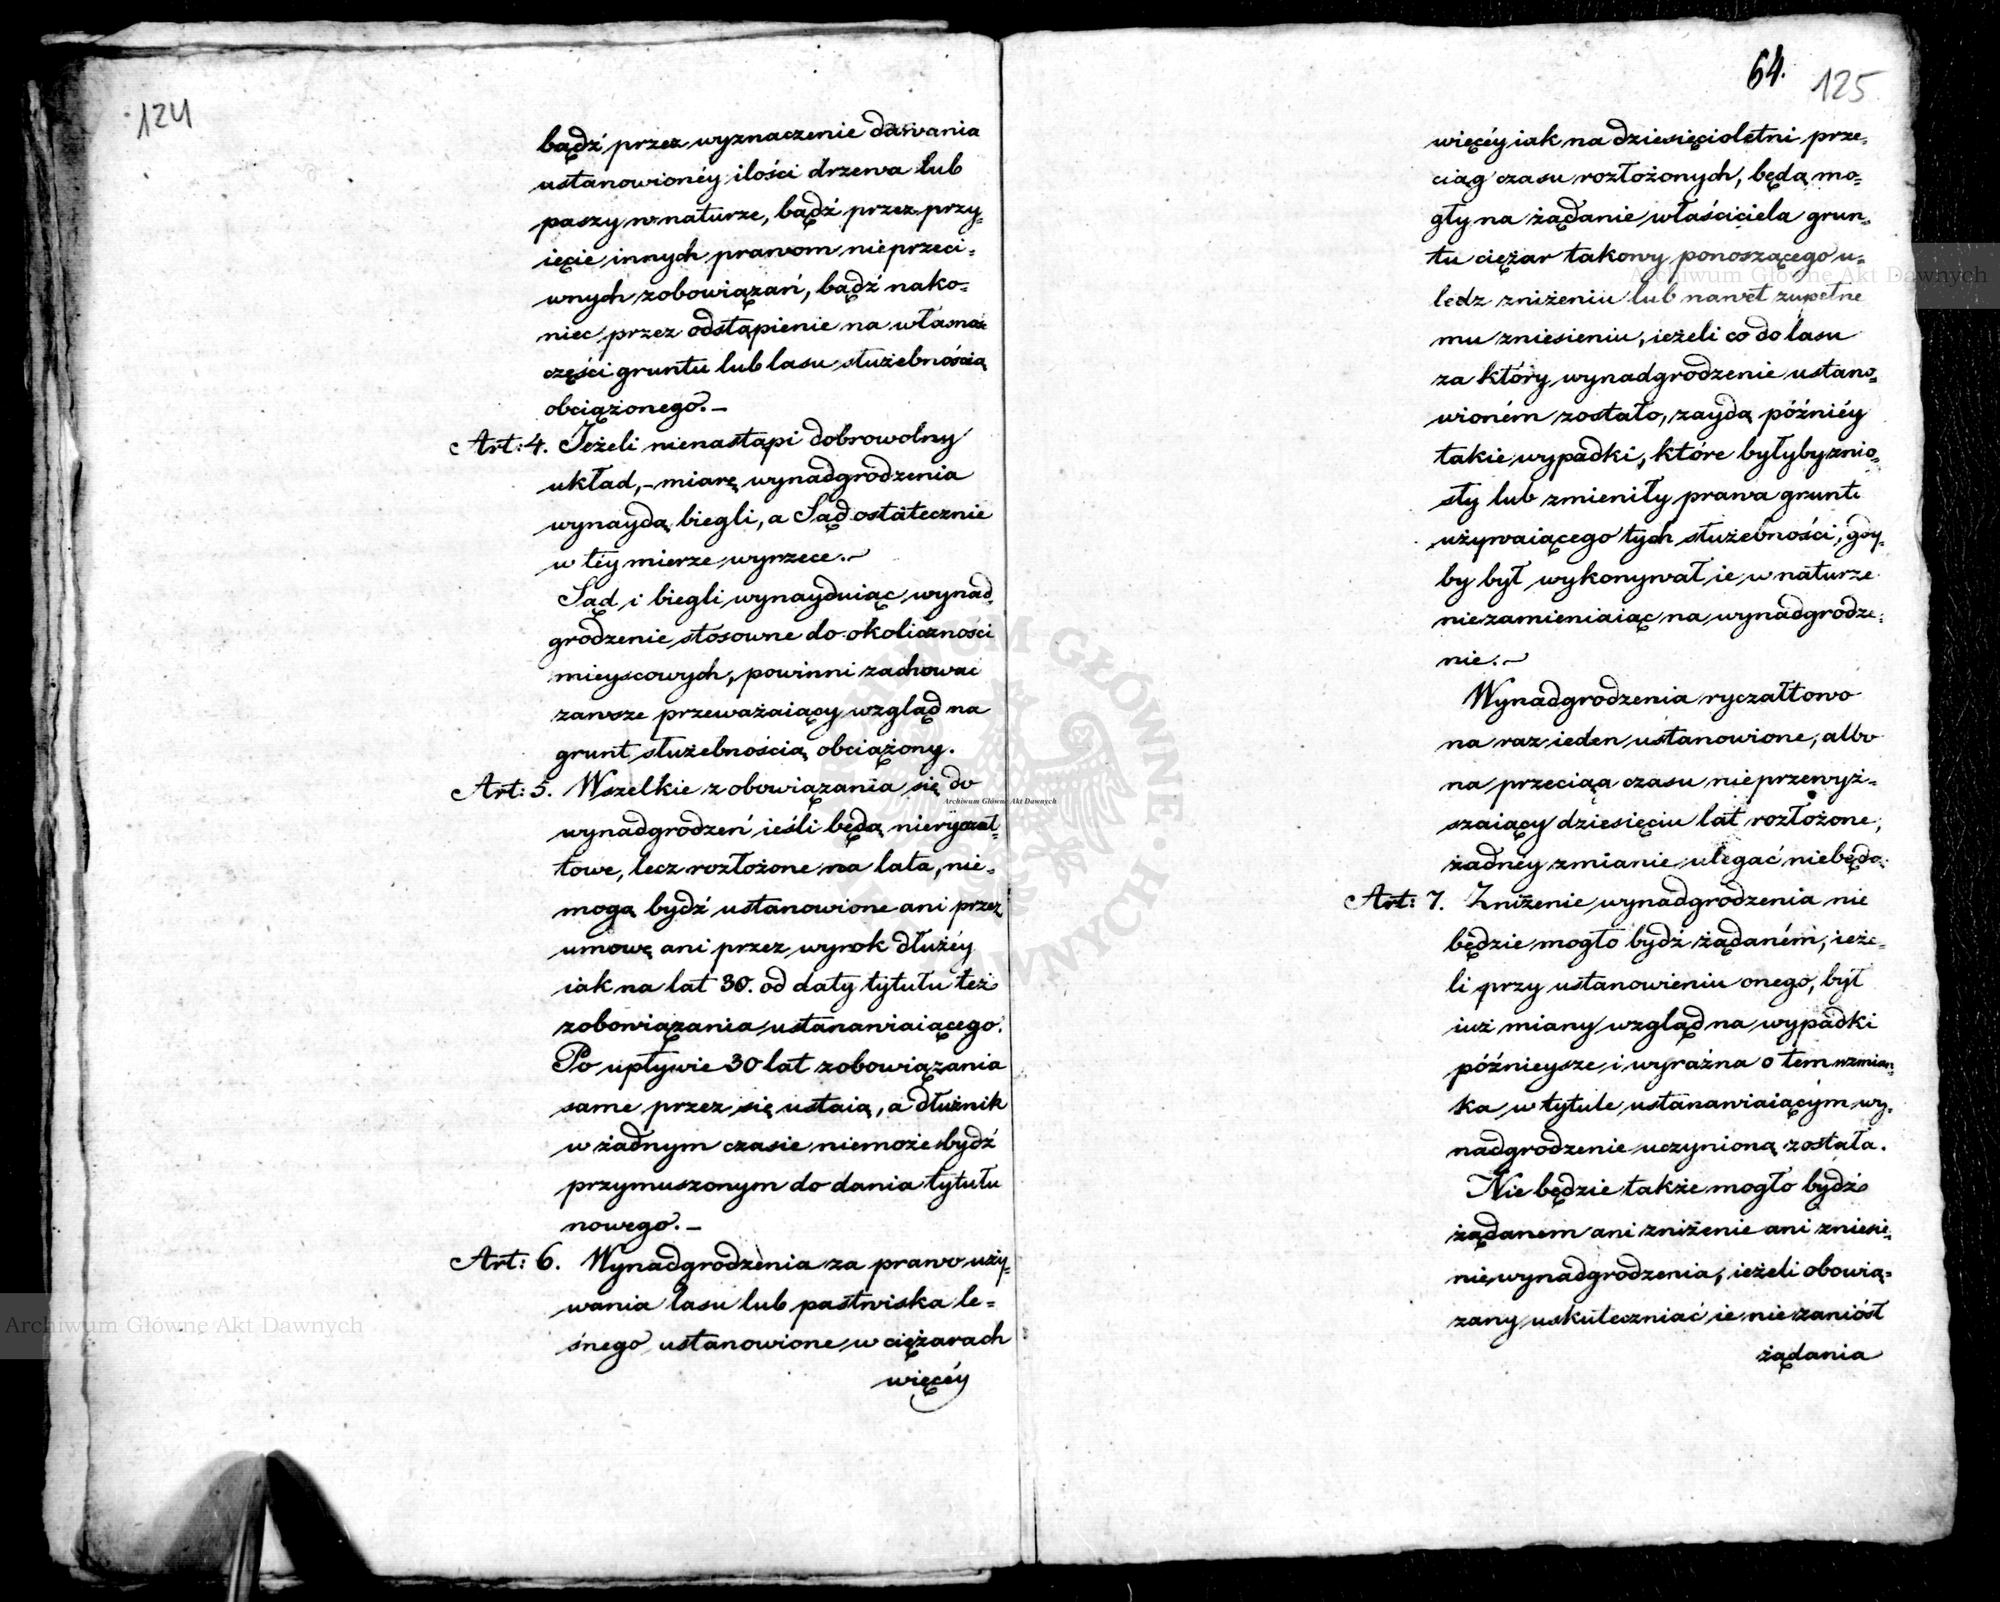 124
bądź przez wyznaczenie dawania
ustanowionéy ilości drzewa lub
paszy w naturze, bądź przez przy-
ięcie innych prawom nieprzeci-
wnych zobowiązań, bądź nako-
niec przez odstąpienie na własność
części gruntu lub lasu służebnością
obciążonego. –
Art: 4. Jeżeli nienastąpi dobrowolny
układ, – miarę wynadgrodzenia
wynaydą biegli, a Sąd ostatecznie
w téy mierze wyrzece. ~
Sąd i biegli wynayduiąc wynad-
grodzenie stosowne do okoliczności
mieyscowych, powinni zachować
zawsze przeważaiący wzgląd na
grunt służebnością obciążony.
Art: 5. Wszelkie zobowiązania się do
wynadgrodzeń ieśli będą nieryczał-
towe, lecz rozłożone na lata, nie-
mogą bydź ustanowione ani przez
umowę ani przez wyrok dłużéy
iak na lat 30. od daty tytułu też
zobowiązania ustanawiaiącego.
Po upływie 30 lat zobowiązania
same przez się ustaią, a dłużnik
w żadnym czasie niemoże bydź
przymuszonym do dania tytułu
nowego. –
Art: 6. Wynadgrodzenia za prawo uży-
wania lasu lub pastwiska le-
śnego ustanowione w ciężarach
więcéy
64.
125
więcéy iak na dziesięcioletni prze-
ciąg czasu rozłożonych, będą mo-
gły na żądanie właściciela grun-
tu ciężar takowy ponoszącego u-
ledz zniżeniu lub nawet zupełne
mu zniesieniu, ieżeli co do lasu
za który wynadgrodzenie ustano-
wioném zostało, zaydą późniéy
takie wypadki, które byłyby znio-
sły lub zmieniły prawa grunt
używaiącego tych służebności, gdy-
by był wykonywał ie w naturze
niezamieniaiąc na wynadgrodze-
nie. ~
Wynadgrodzenia ryczałtowo
na raz ieden ustanowione, albo
na przeciąg czasu nieprzewyż-
szaiący dziesięciu lat rozłożone,
żadnéy zmianie ulegać niebędą.
Art: 7. Zniżenie wynadgrodzenia nie
będzie mogło bydź żądaném, ieże-
li przy ustanowieniu onego, był
iuż miany wzgląd na wypadki
późnieysze i wyraźna o tem wzmian-
ka w tytule ustanawiaiącym wy-
nadgrodzenie uczynioną została.
Nie będzie także mogło bydź
żądanem ani zniżenie ani zniesie-
nie wynadgrodzenia, ieżeli obowią-
zany uskuteczniać ie nie zaniósł
żądania
Archiwum Główne Akt Dawnych
Archiwum Główne Akt Dawnych
Archiwum Główne Akt Dawnych
ARCHIWUM GŁÓWNE AKT DAWNYCH